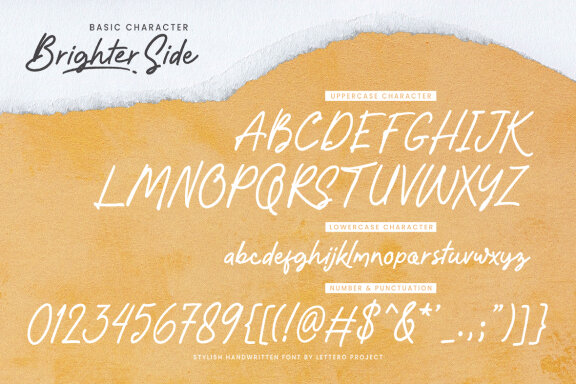 BASIC CHARACTER
Brighter Side
UPPERCASE CHARACTER
ABCDEFGHIJK
LMNOPQRSTUVWXYZ
LOWERCASE CHARACTER
abcdefghijklmnopqrstuvwxyz
NUMBER & PUNCTUATION
0123456789{[(!@#$^&*'_.,;")]}
STYLISH HANDWRITTEN FONT BY LETTERO PROJECT